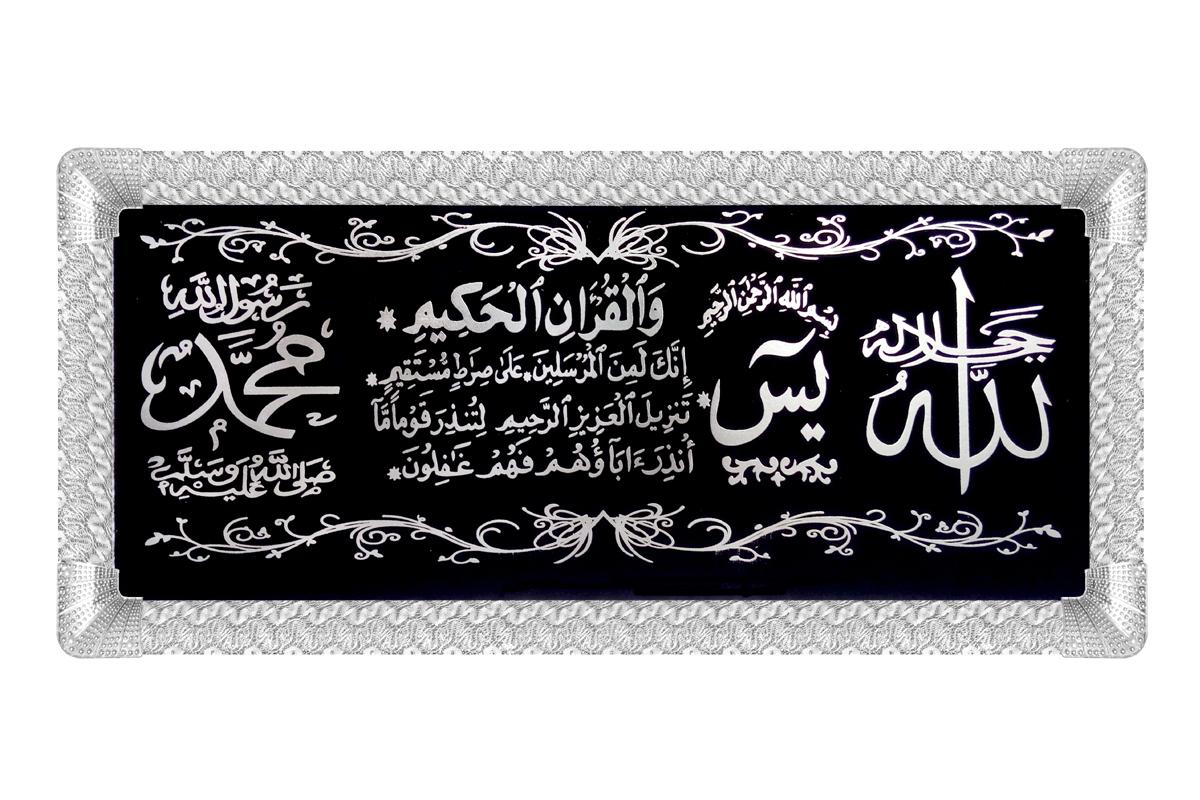 الله
جل جلاله
بسم الله الرحمن الرحيم
يسٓ
وَالْقُرْاٰنِ الْحَكِيمِ *
إِنَّكَ لَمِنَ الْمُرْسَلِينَ * عَلَىٰ صِرَٰطٍ مُّسْتَقِيمٍ *
تَنزِيلَ الْعَزِيزِ الرَّحِيمِ لِتُنذِرَ قَوْمًا مَّآ
أُنذِرَ ءَابَآؤُهُمْ فَهُمْ غَٰفِلُونَ *
رسول الله
محمد
صلى الله عليه وسلم